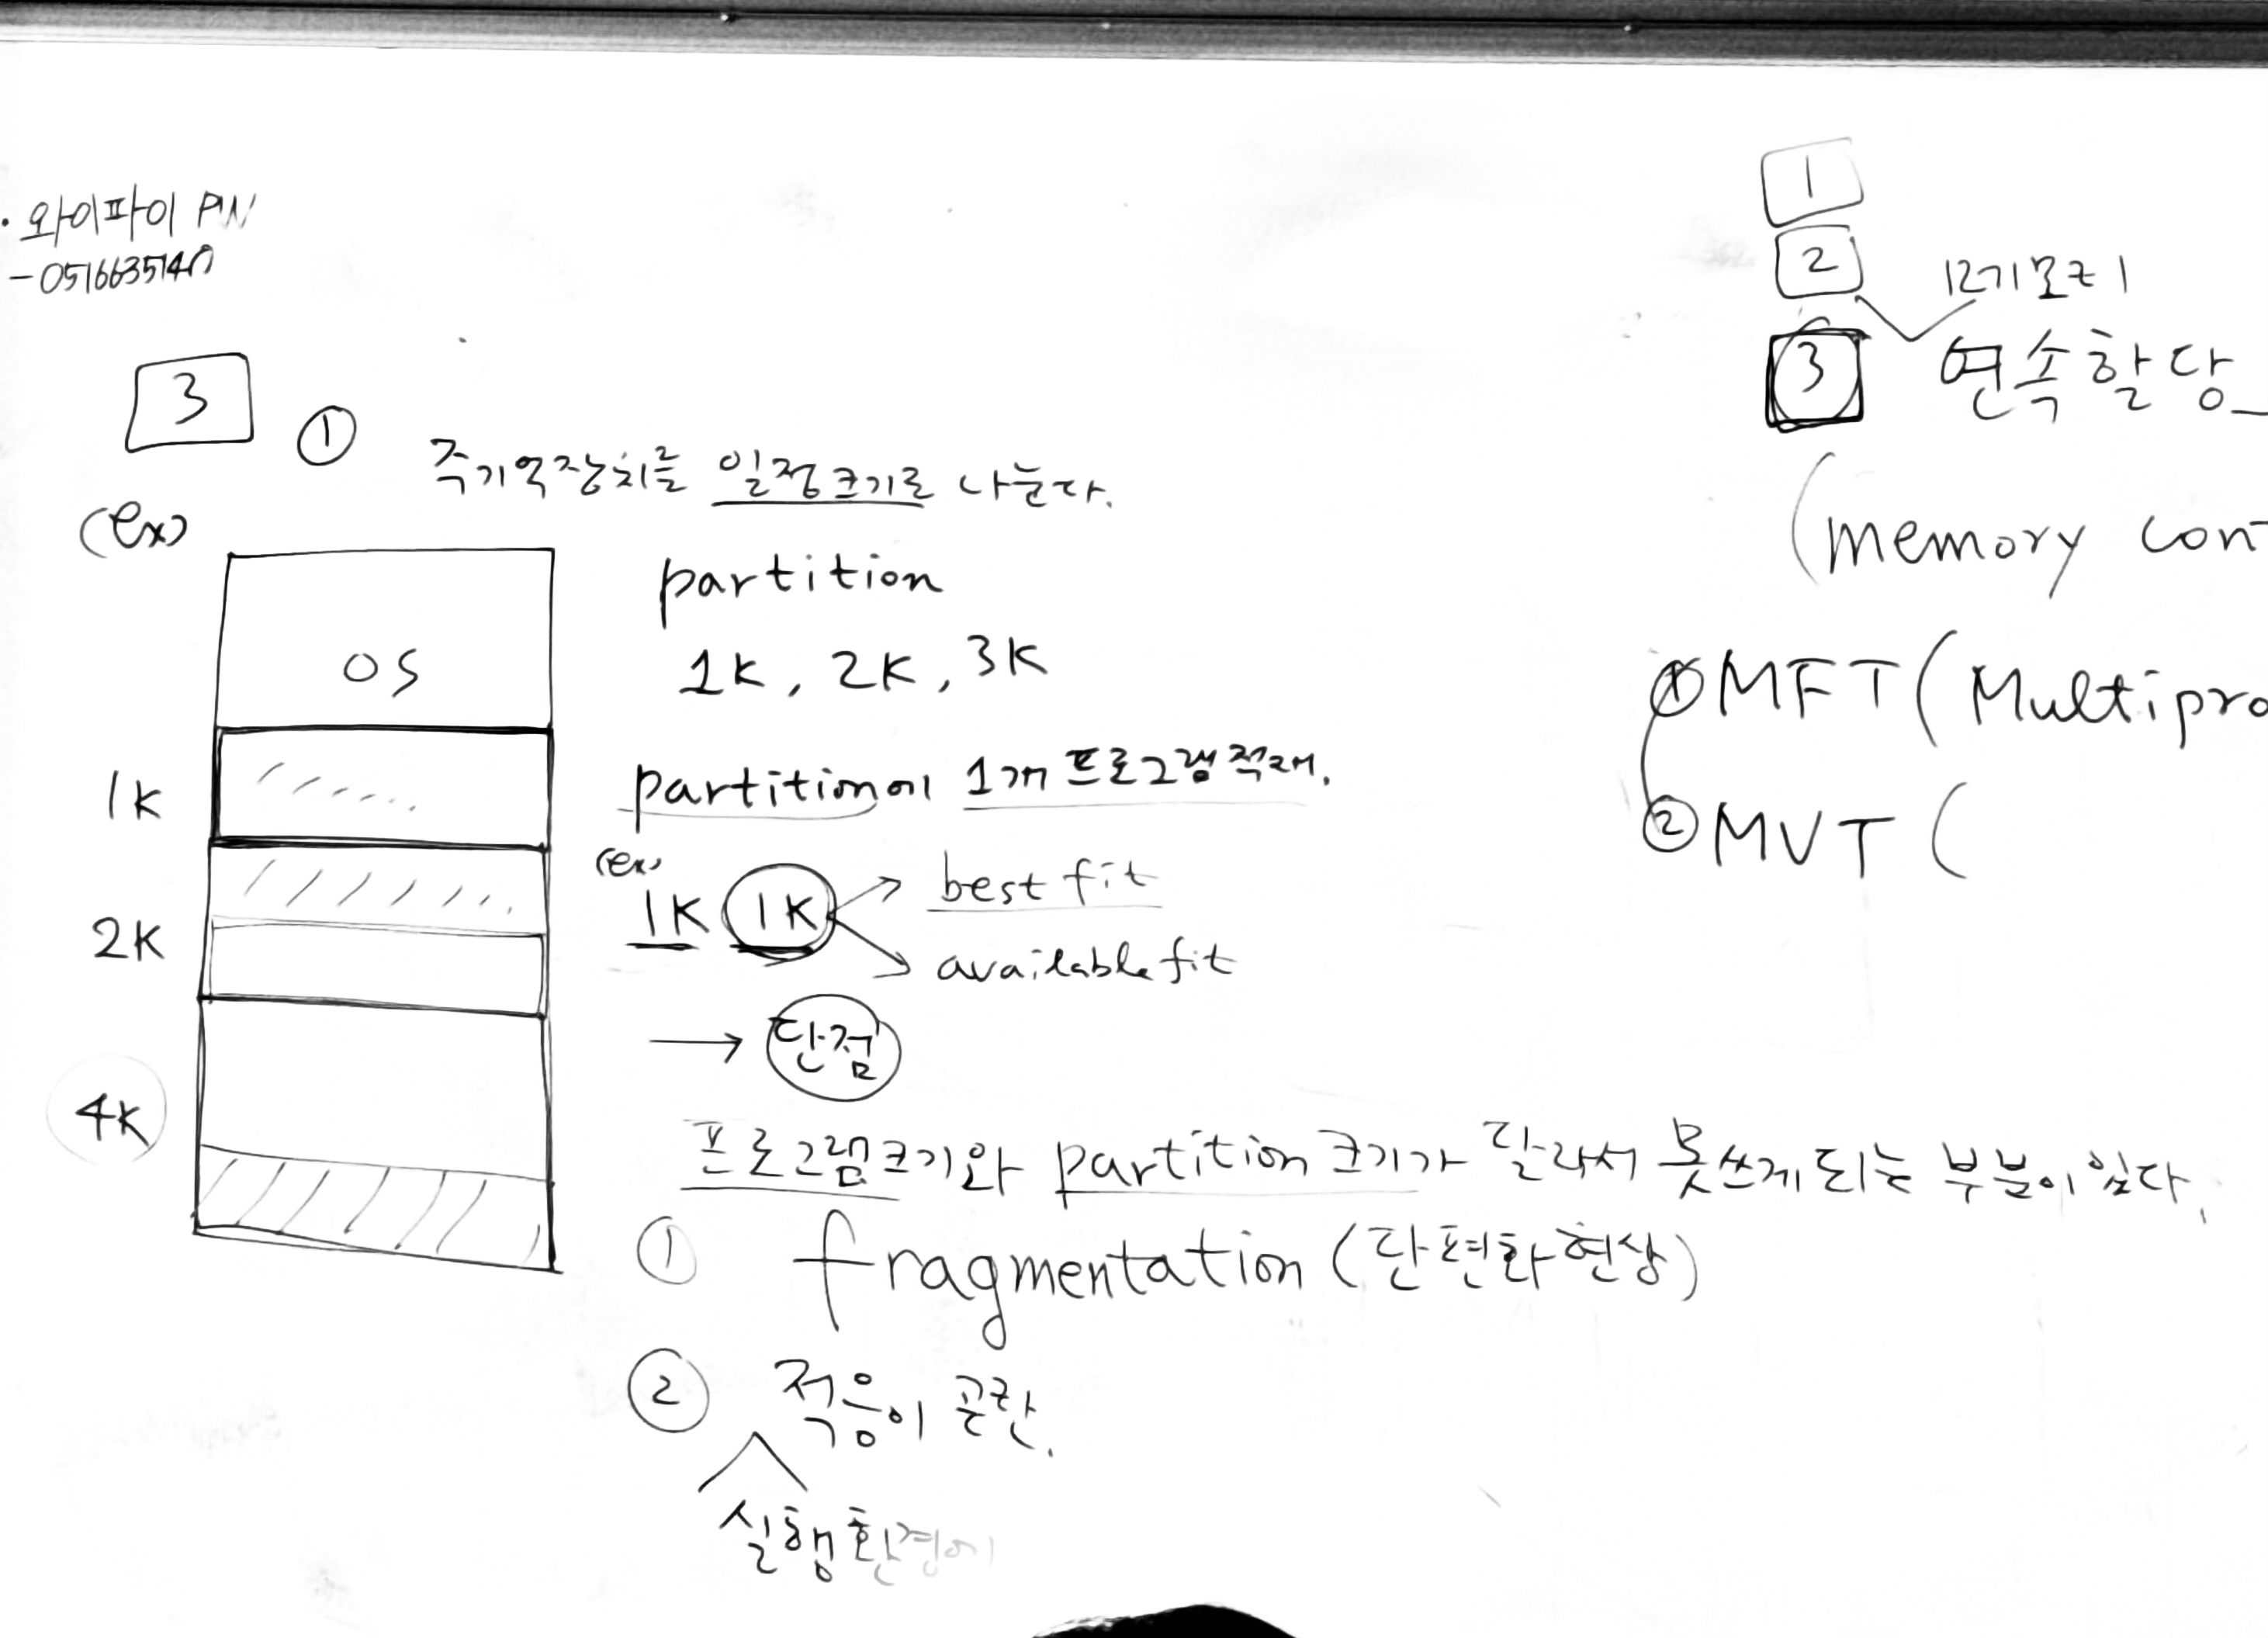 · 와이파이 PW
3
① 주기억장치를 일정크기로 나눈다.
(ex)
OS
1K
2K
4K
partition
1K, 2K, 3K
partition에 1개 프로그램 적재.
(ex)
1K 1K
best fit
available fit
→ 단점
프로그램크기와 partition 크기가 달라서 못쓰게 되는 부분이 있다.
① fragmentation (단편화 현상)
② 적응이 곤란.
실행환경에
1
2
3 연속할당
(memory con
① MFT (Multipro
② MVT (